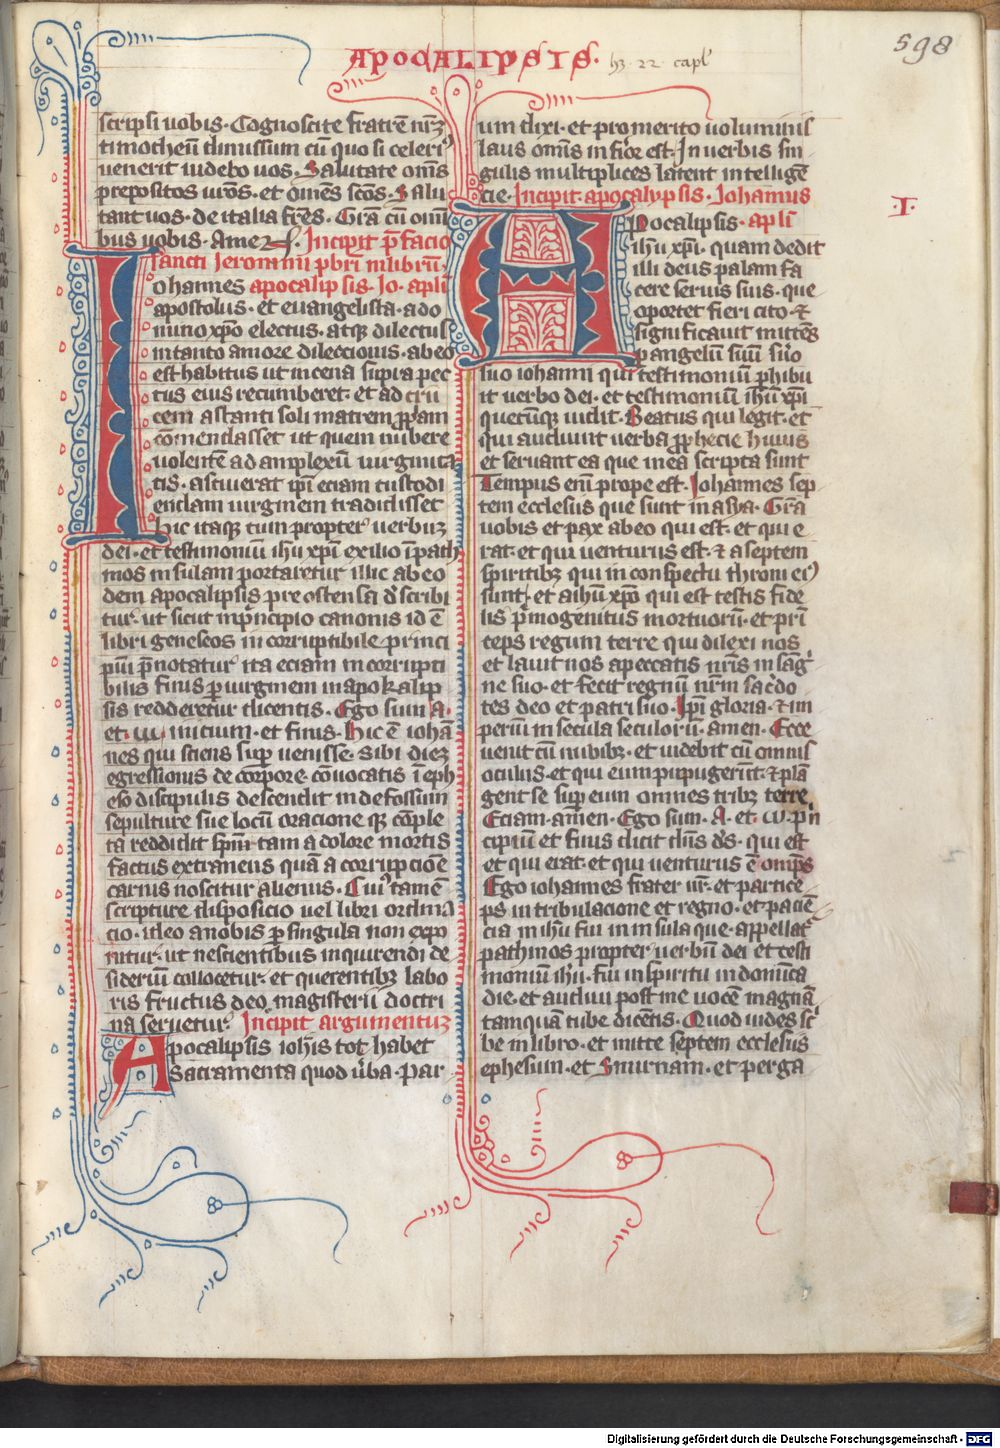 APOCALIPSIS. hꝫ 22 capl'
598
scripsi uobis. Cognoscite fratrē nr̄ꝫ
timotheū dimissum cū quo si celeriꝰ
uenerit uidebo uos. Salutate om̄s
prepositos ur̄os. et om̄es sc̄os. Salu
tant uos. de italia fr̄es. Gr̄a cū omi
bus uobis. Amen. Incipit p̄facio
sancti Jeronimi p̄br̄i in librū
Johannes apocalipsis. Jo. apl̄i
apostolus. et euangelista. a do
mino xp̄o electus. atqꝫ dilectus
in tanto amore dileccionis. ab eo
est habitus ut in cena supra pec
tus eius recumberet. et ad cru
cem astanti soli matrem ꝓpam
cōmendasset ut quem nubere
uolentē ad amplexū uirginita
tis. asciuerat ip̄i eciam custodi
endam uirginem tradidisset
hic itaqꝫ cum propter uerbuꝫ
dei. et testimoniū ih̄u xp̄i exilio ī path
mos insulam portaretur illic ab eo
dem apocalipsis pre ostensa dʼscribi
tur. ut sicut in p̄ncipio canonis id ē
libri geneseos incorruptibile princi
piū p̄notatur ita eciam incorrupti
bilis finis ꝑ uirginem in apokalip
sis redderetur dicentis. Ego sum A.
et. ω. inicium. et finis. Hic ē iohā
nes qui sciens suꝑ uenisse. sibi dieꝫ
egressionis de corpore. cōuocatis ī eph
eso discipulis descendit in defossum
sepulture sue locū oracione qꝫ cōple
ta reddidit sp̄m. tam a dolore mortis
factus extraneus quā a corrupcioē
carnis noscitur alienus. Cuiꝰ tamē
scripture disposicio uel libri ordina
cio. ideo a nobis ꝑ singula non expo
nitur. ut nescientibus inquirendi de
siderium collocetur. et querentibꝫ labo
ris fructus deo magisterii doctri
na seruetur. Incipit argumentuꝫ
Apocalipsis ioh̄is tot habet
Sacramenta quod u̇ba. Par
um dixi. et pro merito uoluminis
laus om̄is inferior est. In uerbis sin
gulis multiplices latent intelligē
cie. Incipit. apocalypsis. Johannis
Apocalipsis. apl̄i
I.
ih̄u xp̄i. quam dedit
illi deus palam fa
cere seruis suis. que
oportet fieri cito. et
significauit mittēs
p angelū suū suo
suo iohanni qui testimoniū ꝑhibu
it uerbo dei. et testimoniū ih̄u xp̄i
quecūqꝫ uidit. Beatus qui legit. et
qui audiunt uerba ꝓphecie huius
et seruant ea que in ea scripta sunt
Tempus eni prope est. Johannes sep
tem ecclesiis que sunt in asya. Gr̄a
uobis et pax ab eo qui est. et qui e
rat. et qui uenturus est. et a septem
spiritibꝫ qui in conspectu throni eiꝰ
sunt. et a ih̄u xp̄o qui est testis fide
lis p̄mogenitus mortuorū. et pri
ceps regum terre qui dilexi nos
et lauit nos a peccatis nr̄is in sāg
ne suo. et fecit regnū nr̄m sac̄do
tes deo et patri suo. Ip̄i gloria. et im
perium in secula seculorū. amen. Ecce
uenit cū nubibꝫ. et uidebit eū omnis
oculus. et qui eum pupugerūt. et plā
gent se suꝑ eum omnes tribꝫ terre
Eciam. amen. Ego sum. A. et. ω. p̄n
cipiū et finis dicit dn̄s d̄s. qui est
et qui erat. et qui uenturus ē om̄ps
Ego iohannes frater ur̄. et partice
ps in tribulacione et regno. et paciē
cia in ih̄u fui in insula que. appellat
pathmos propter uerbū dei et testi
moniū ih̄u. fui in spiritu in domīca
die. et audiui post me uocē magnā
tamquā tube dicētis. Quod uides sc̄
be in libro. et mitte septem ecclesiis
ephesum. et Smirnam. et perga
Digitalisierung gefördert durch die Deutsche Forschungsgemeinschaft - DFG